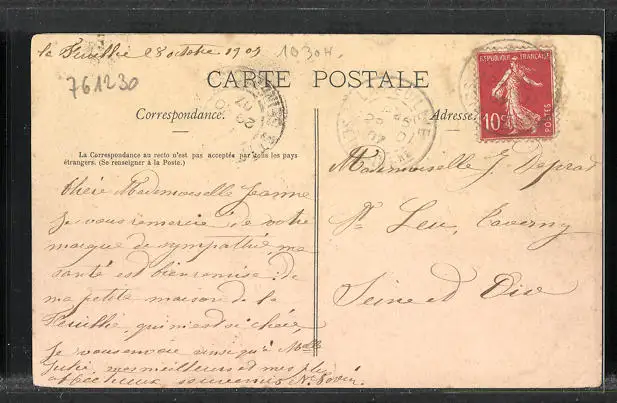 la Feuillie 28 octobre 1907 1030H
761230
CARTE POSTALE
Correspondance.
Adresse
La Correspondance au recto n'est pas acceptée par tous les pays
étrangers. (Se renseigner à la Poste.)
Chère Mademoiselle Jeanne
je vous remercie de votre
marque de sympathie, ma
santé est bien remise; de
ma petite maison de la
Feuillie, qui m'est si chère
je vous envoie ainsi qu'à Melle
Julie, mes meilleurs et mes plus
affectueux souvenirs
REPUBLIQUE FRANÇAISE
10c
POSTES
Mademoiselle J. Deprad
St Leu, Taverny
Seine et Oise